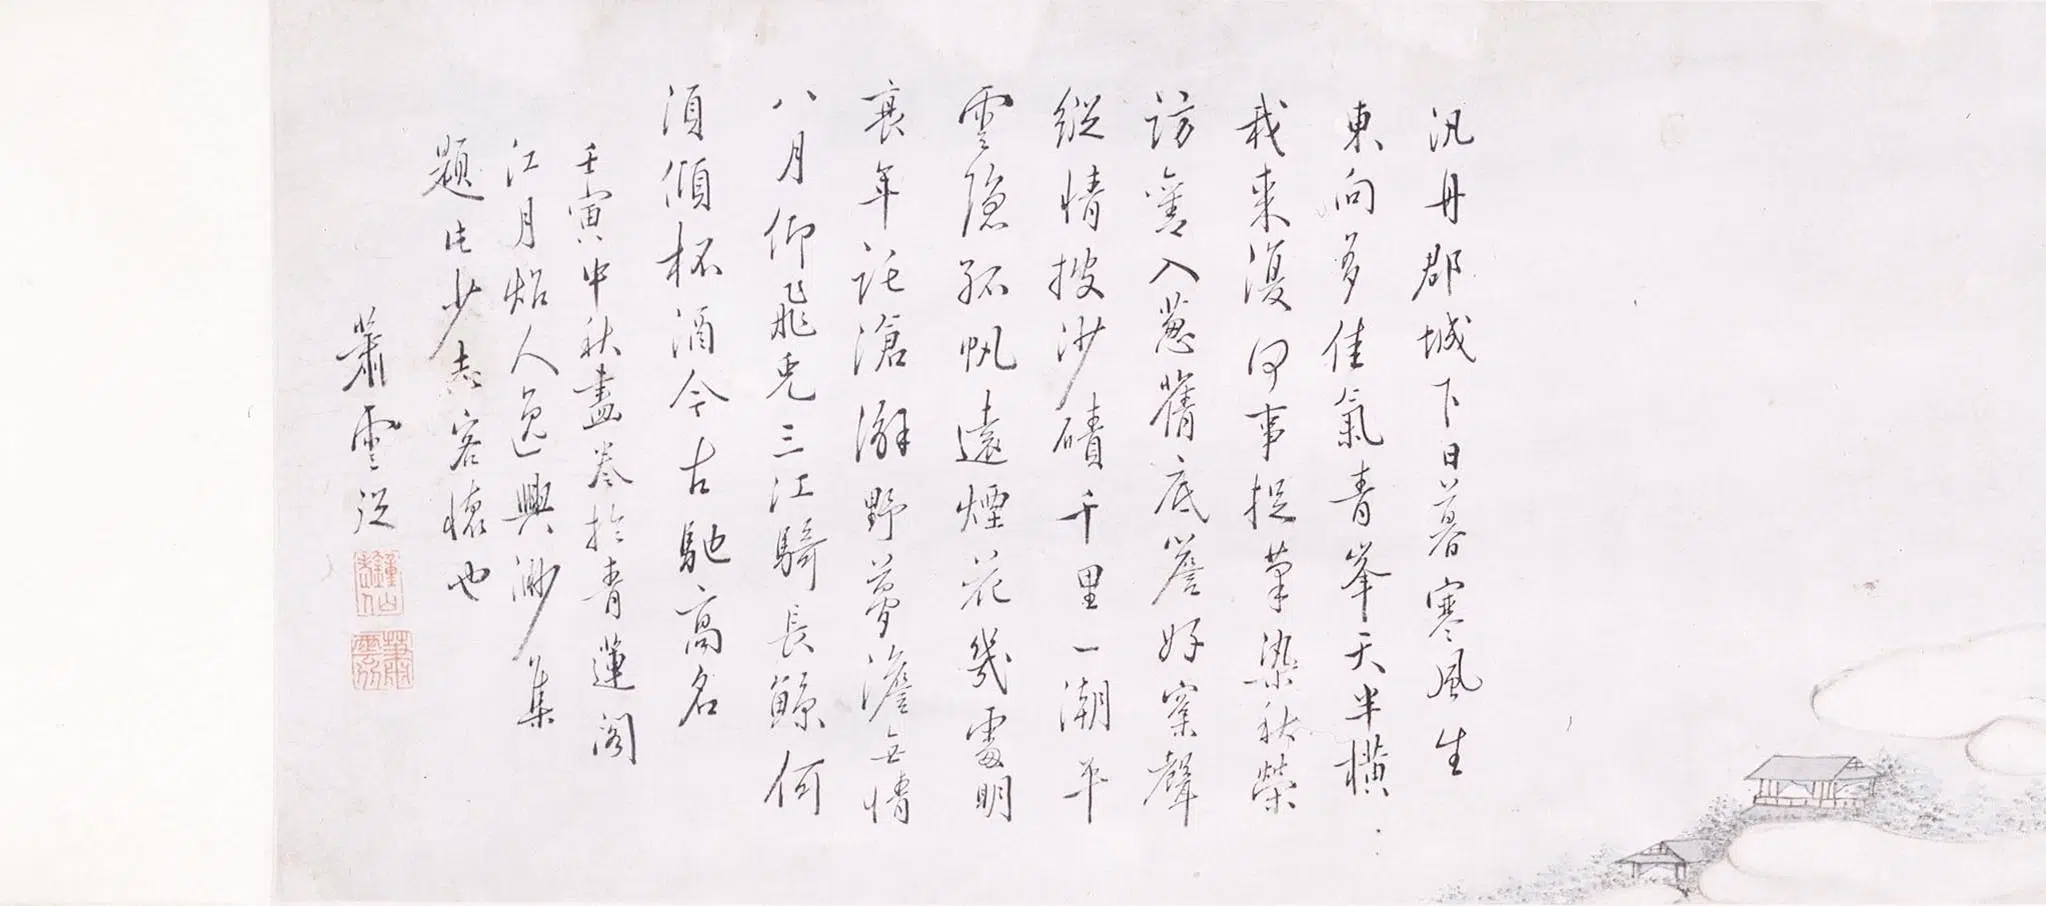 汎丹郡城下日暮寒風生
東向多佳氣青峯天半橫
我來復何事捉筆染秋榮
訪舊入蔥蒨底詹好案聲
縱情披沙磧千里一潮平
雲隱孤帆遠煙花幾處明
衰年託滄澥野夢澹無情
八月仰飛兔三江騎長鯨何
須傾杯酒今古馳高名
壬寅中秋畫卷於青蓮閣
江月炤人逸興渺集
題此少志客懷也
蕭雲從
鍾山老人
蕭雲從